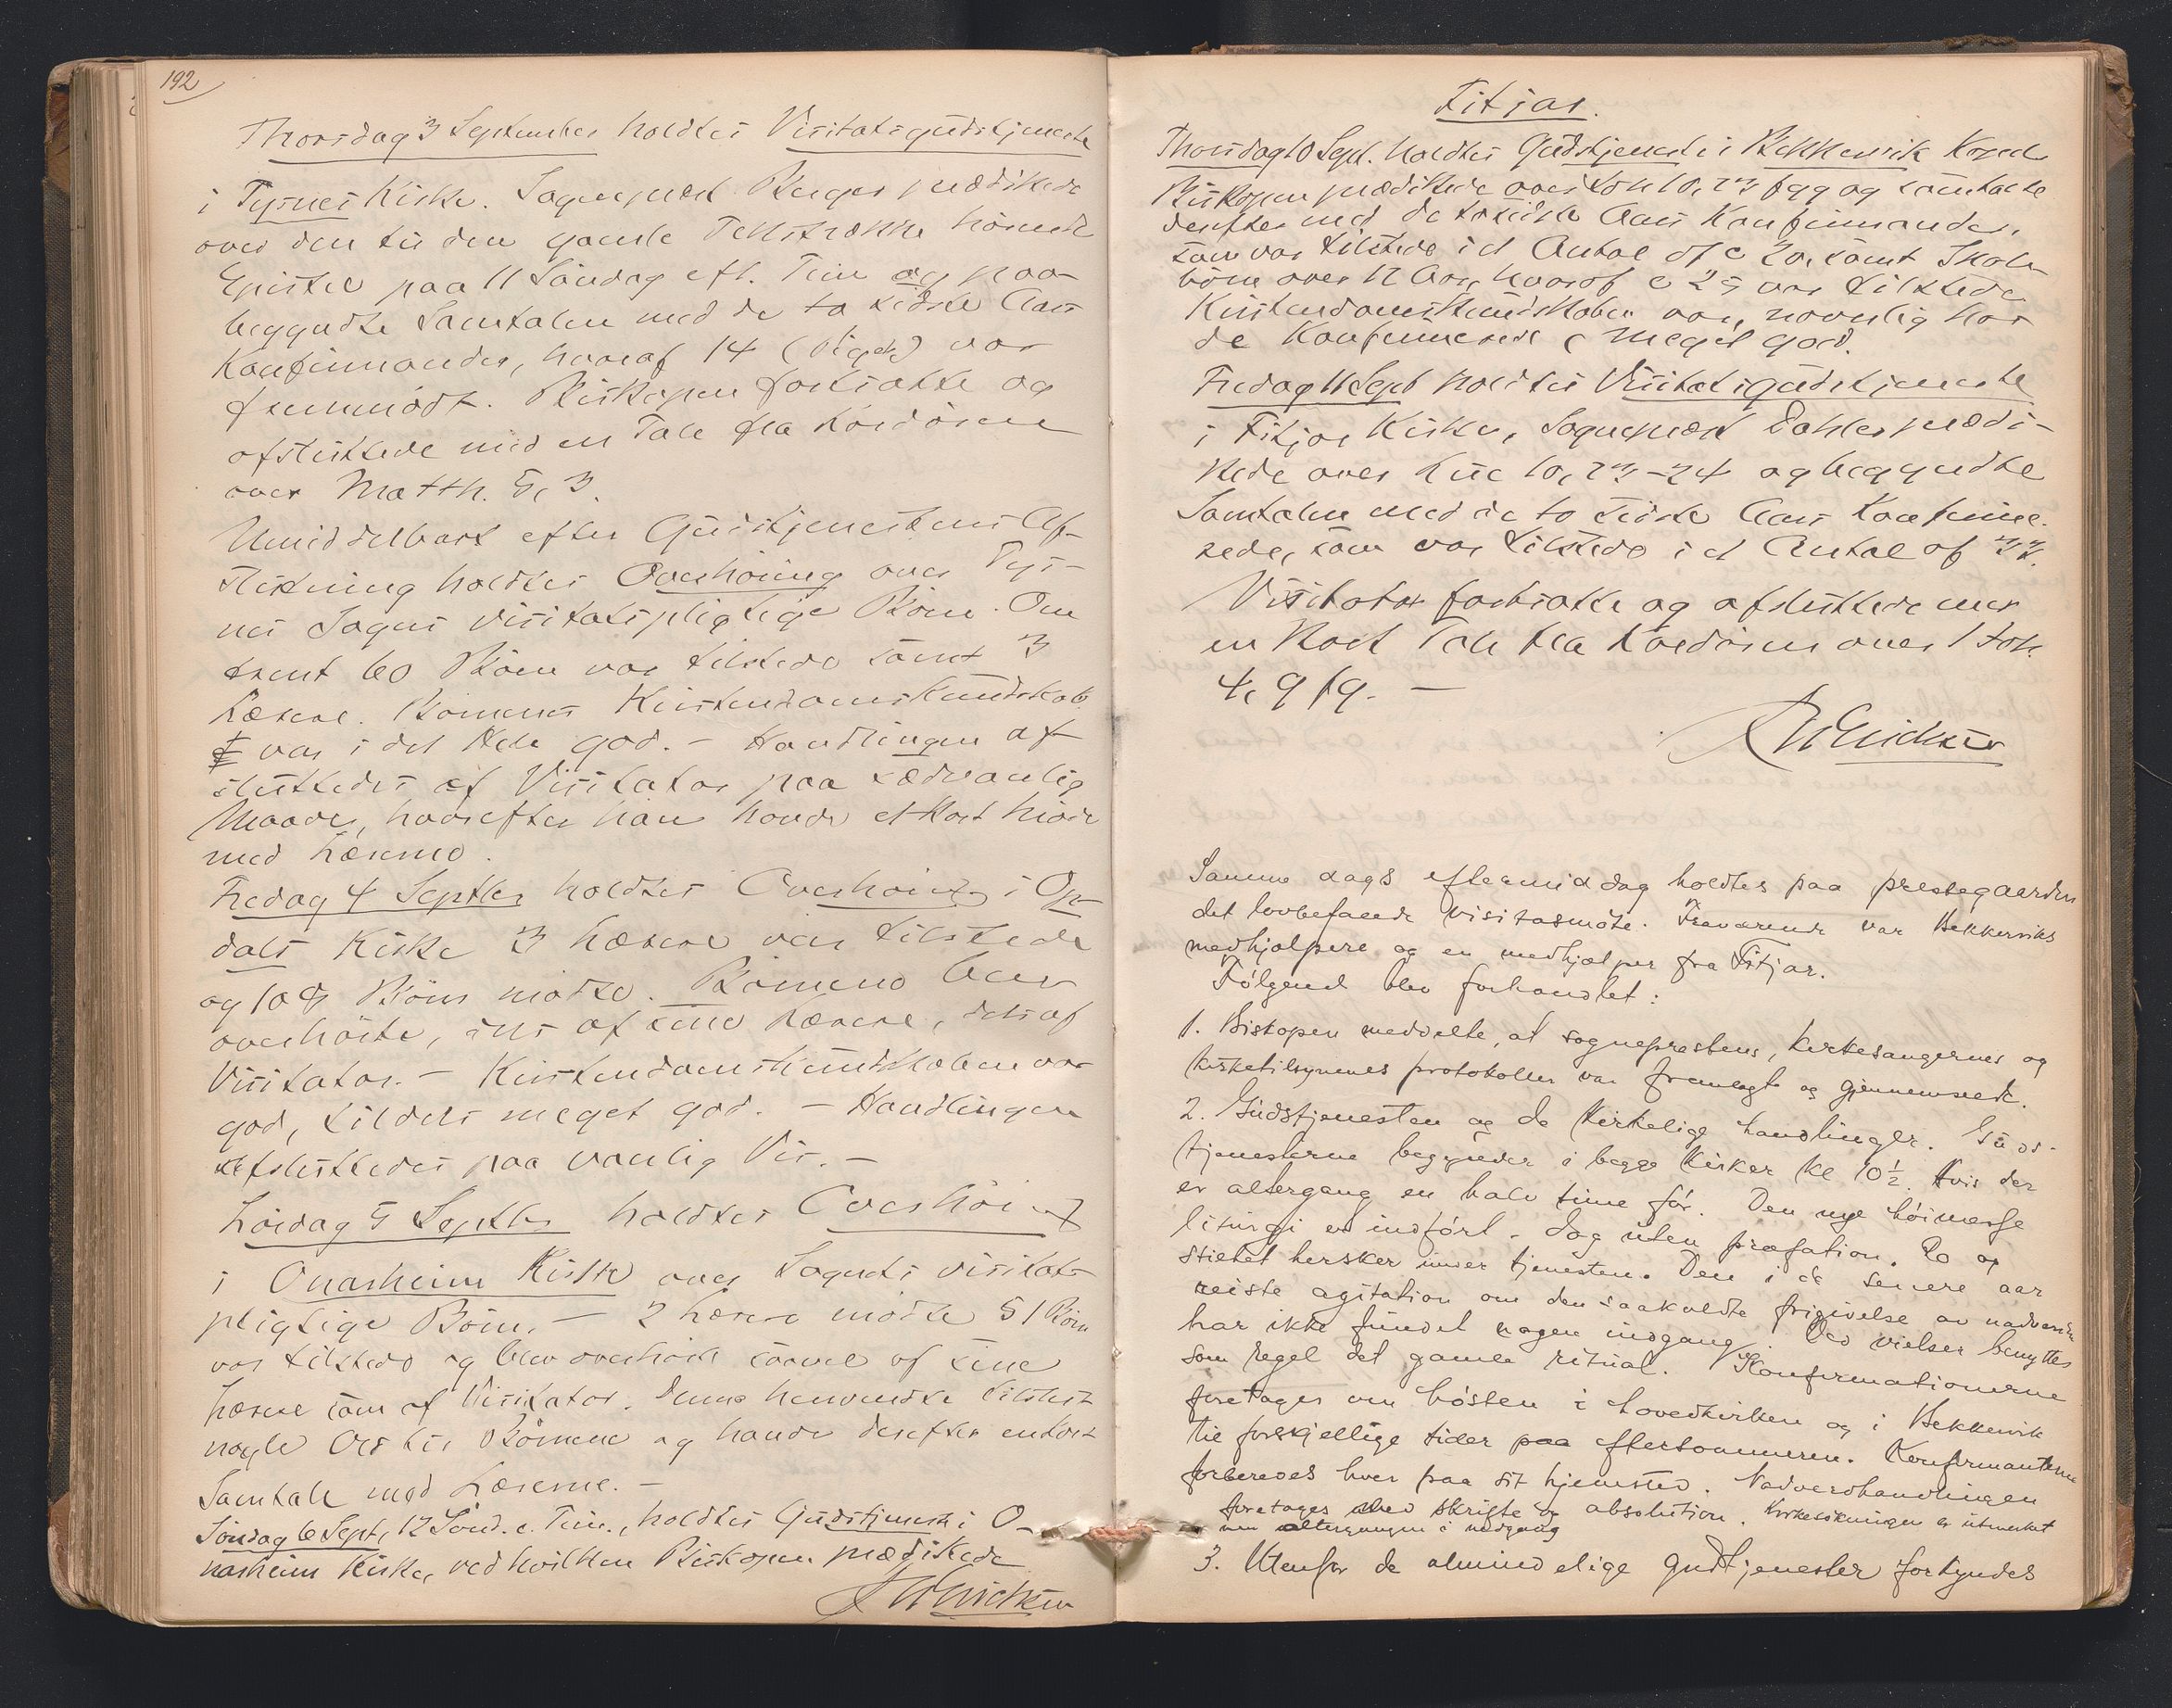 192
Thorsdag 3 September holdtes Visitatsgudstjeneste
i Tysnes Kirke. Sogneprest Berger prædikede
over den til den gamle Textrække hørende
Epistel paa 11 Søndag eft. Trin og paa-
begyndte Samtalen med de to sidste Aars
Konfirmander, hvoraf 14 (Piger) var
fremmødt. Biskopen fortsatte og
afsluttede med en Tale fra Kordøren
over Matth. 5, 3.
Umiddelbart efter Gudstjenestens Af-
slutning holdtes Overhøring over Tys-
nes Sogns visitatspligtige Børn. Om
trent 60 Børn var tilstede samt 3
Lærere. Børnenes Kristendomskundskab
var i det Hele god. - Handlingen af
sluttedes af Visitator paa sædvanlig
Maade, hvorefter han havde et kort Møde
med Lærerne.
Fredag 4 Septbr holdtes Overhøring i Op-
dals Kirke 3 Lærere var tilstede
og Børn mødte. Børnene blev
overhørte, dels af sine Lærere, dels af
Visitator. - Kristendomskundskaben var
god, tildels meget god. - Handlingen
afsluttedes paa vanlig Vis. -
Lørdag 5 Septbr holdtes Overhøring
i Onarheim Kirke over Sognets visitats-
pligtige Børn. - 2 Lærere mødte 51 Børn
var tilstede og blev overhørt saavel af sine
Lærere som af Visitator. Denne henvendte tilslut
nogle Ord til Børnene og havde derefter en kort
Samtale med Lærerne. -
Søndag 6 Sept, 12 Sønd. e. Trin., holdtes Gudstjeneste i O-
narheim Kirke, ved hvilken Biskopen prædikede
Fitjar.
Thorsdag 10 Sept. holdtes Gudstjeneste i Bekkervik Kapel.
Biskopen prædikede over Luk 10, 23 fgg og samtalte
derefter med de to sidste Aars Konfirmander,
som var tilstede i et Antal af c 20, samt Skole-
børn over 12 Aar, hvoraf c 25 var tilstede
Kristendomskundskaben var, navnlig hos
de Konfirmerede, meget god.
Fredag 11 Sept holdtes Visitatsgudstjeneste
i Fitjar Kirke, Sogneprest Dahle prædi-
kede over Luc 10, 23-24 og begyndte
Samtalen med de to sidste Aars Konfirme-
rede, som var tilstede i et Antal af 33.
Visitator fortsatte og afsluttede med
en kort Tale fra Kordøren over 1 Joh.
4, 9 fg. -
Samme dags eftermiddag holdtes paa prestegaarden
det lovbefalede visitasmøte. Tilstede var Bekkerviks
medhjælpere og en medhjælper fra Fitjar.
Følgende blev forhandlet:
1. Biskopen meddelte, at sogneprestens, kirkesangernes og
kirketilsynenes protokoller var fremlagt og gjennemseet.
2. Gudstjenesten og de kirkelige handlinger. Guds-
tjenesterne begynder i begge kirker kl 10½. Hvis der
er altergang en halv time før. Den nye høimesse
liturgi er indført. Dog uten præfation. Ro og
stilhet hersker under tjenesten. Den i de senere aar
reiste agitation om den saakaldte frigivelse av nadveren
har ikke fundet nogen indgang. Ved vielser benyttes
som regel det gamle ritual. Konfirmationerne
foretages om høsten i hovedkirken og i Bekkervik
til forskjellige tider paa eftersommeren. Konfirmanterne
forberedes hver paa sit hjemsted. Nadverdhandlingen
foretages med skrifte og absolution. Kirkesøkningen er utmerket
men altergangen i nedgang
3. Utenfor de almindelige gudstjenester forkyndes